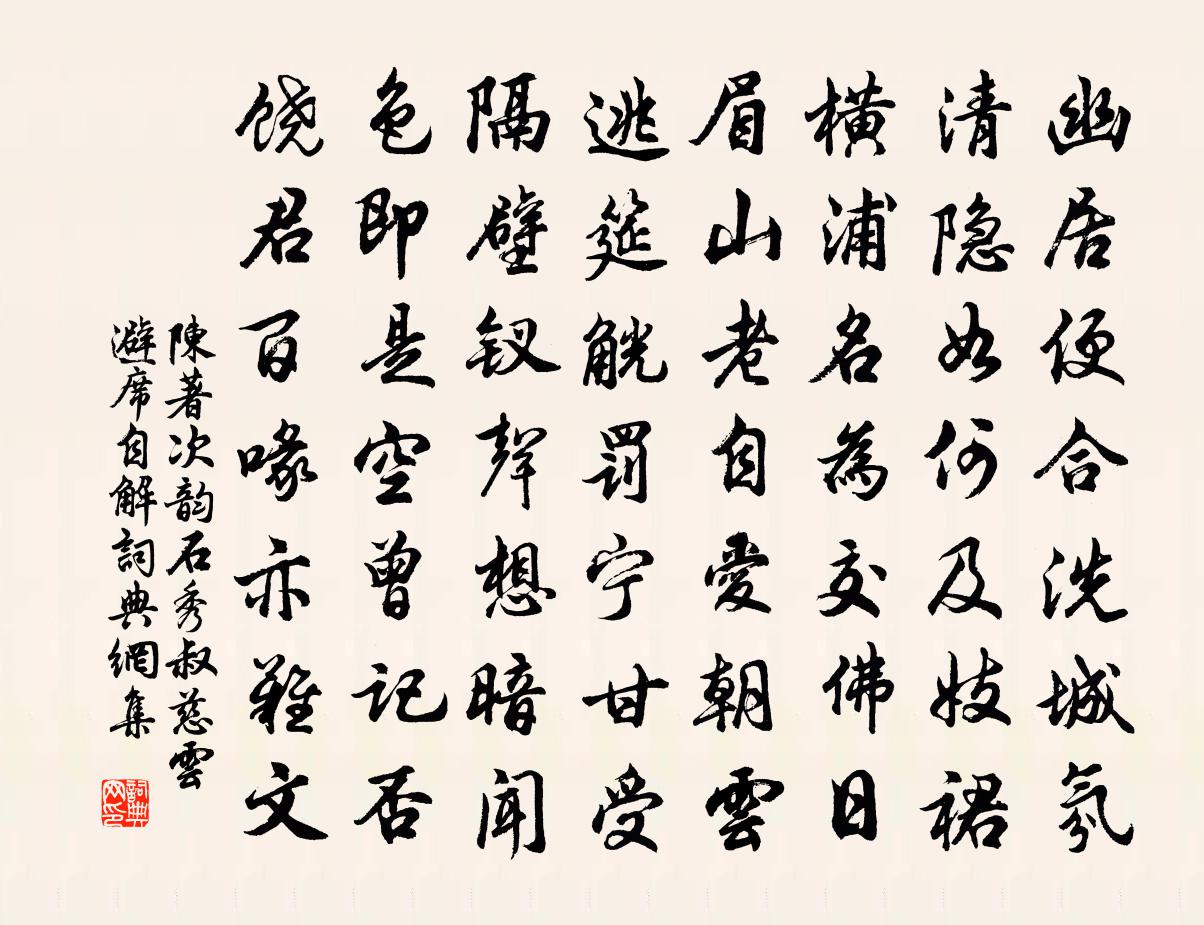 幽居便合洗城氛
清隐如何及妓裙
横浦名為交佛日
眉山老自愛朝雲
逃筵觥罰宁甘受
隔壁钗聲想暗聞
色即是空曾记否
饶君百喙亦難文
陳著次韵石秀叔慈雲
避席自解詞典網集
詞典网印